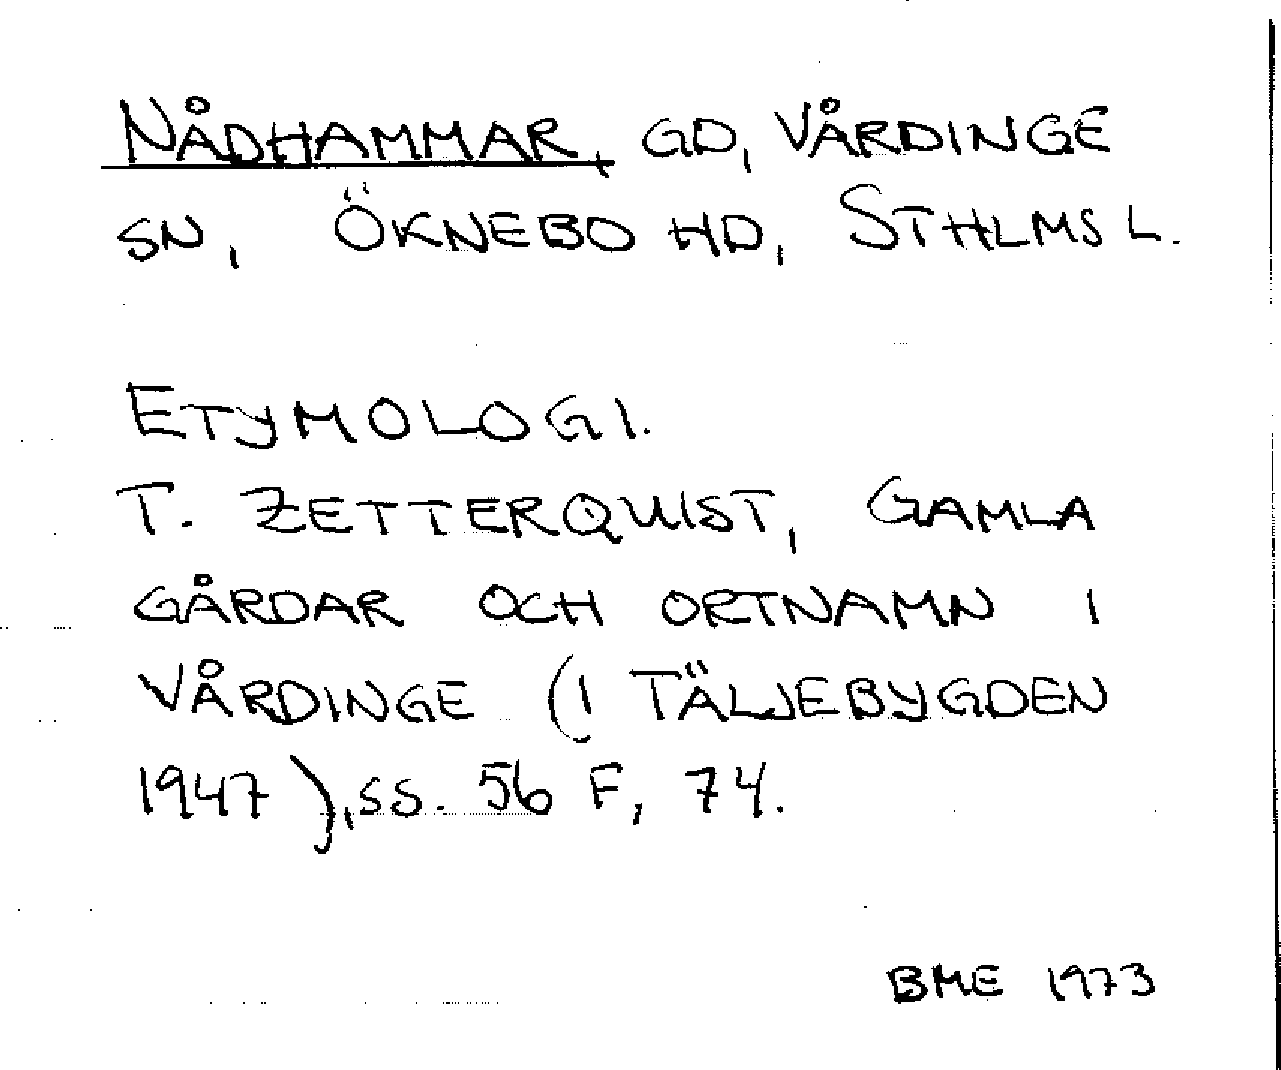 NÅDHAMMAR, GD, VÅRDINGE
SN, ÖKNEBO HD, STHLMS L.
ETYMOLOGI.
T. ZETTERQUIST, GAMLA
GÅRDAR OCH ORTNAMN I
VÅRDINGE (I TÄLJEBYGDEN
1947), SS. 56 F, 74.
BME 1973